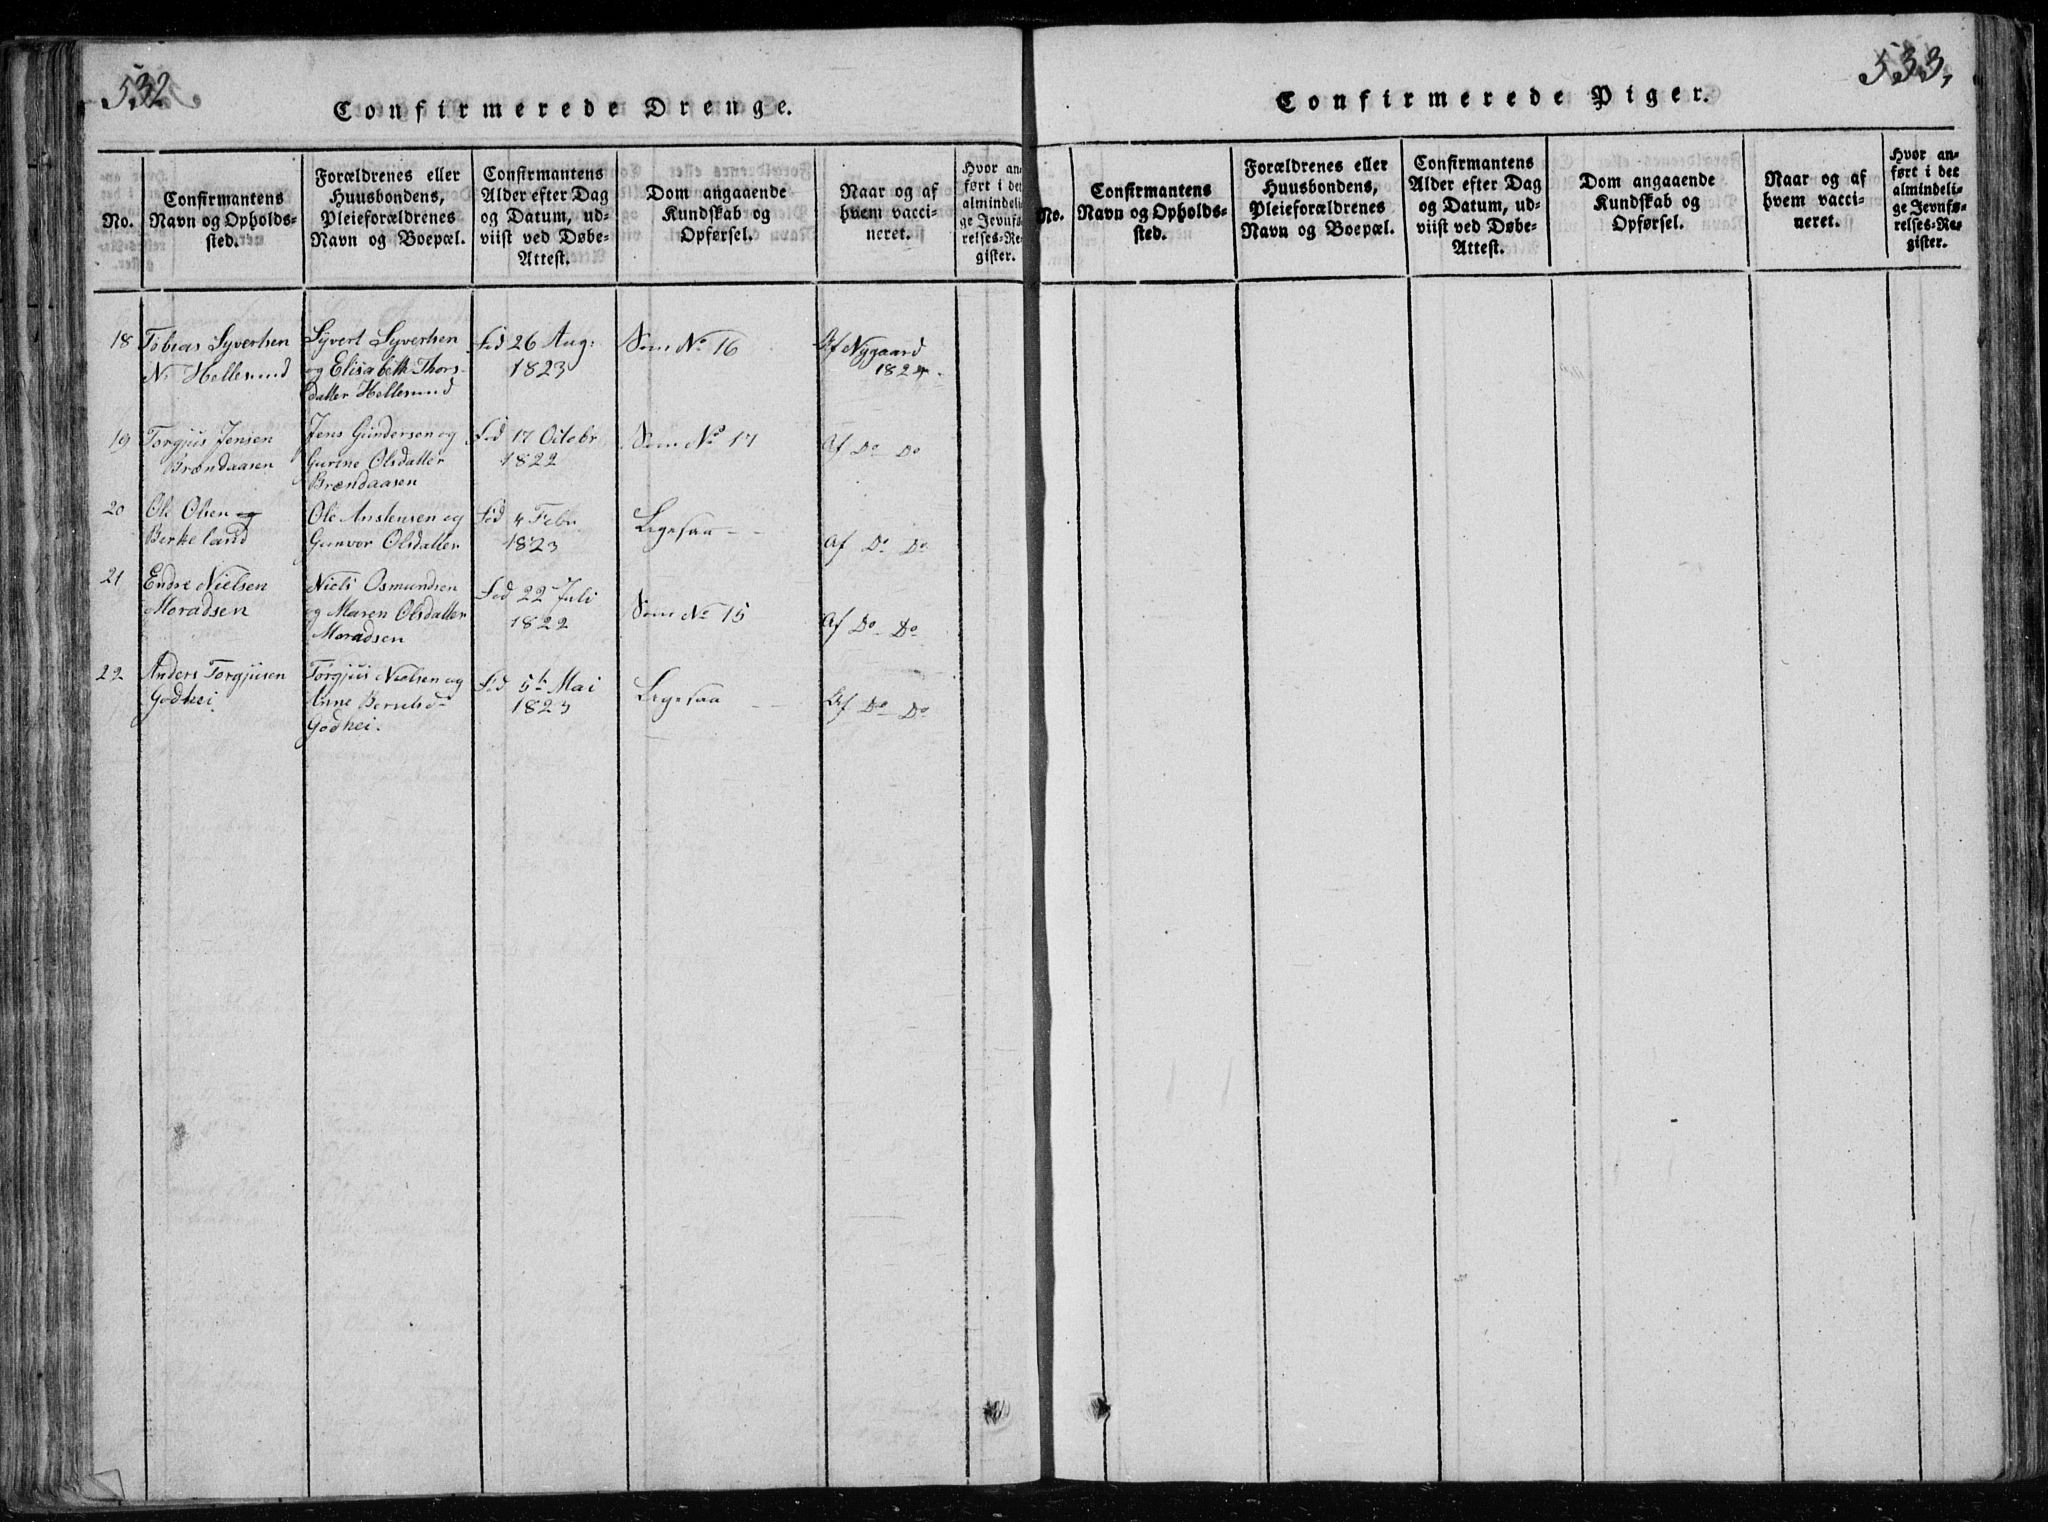 532
Confirmerede Drenge.
No.
Confirmantens
Navn og Opholds-
sted.
Forældrenes eller
Huusbondens,
Pleieforældrenes
Navn og Boepæl.
Confirmantens
Alder efter Dag
og Datum, ud-
viist ved Døbe-
Attest.
Dom angaaende
Kundskab og
Opførsel.
Naar og af
hvem vacci-
neret.
Hvor an-
ført i det
almindeli-
ge Jevnfø-
relses-Re-
gister.
18
Tobias Syvertsen
N. Hellesund
Syvert Syvertsen
og Elisabeth Thors-
datter Hellesund
Fød 26 Aug:
1823
Som No 16
Af Nygaard
1824.
19
Torgjus Jensen
Brændaasen
Jens Gundersen og
Gurine Olsdatter
Brændaasen
Fød 17 Octobr
1822
Som No 17
Af Do Do
20
Ole Olsen og
Birkeland
Ole Anstensen og
Gunvor Olsdatter
Fød 4 Febr.
1823
Ligesaa - -
Af Do Do
21
Endre Nielsen
Moradsen
Niels Osmundsen
og Maren Olsdatter
Moradsen
Fød 22 Juli
1822
Som No 15
Af Do Do
22
Anders Torgjusen
Godhei
Torgjus Nielsen og
Anne
Godhei.
Fød 5te Mai
1823
Ligesaa - -
Af Do Do
533,
Confirmerede Piger.
No.
Confirmantens
Navn og Opholds-
sted.
Forældrenes eller
Huusbondens,
Pleieforældrenes
Navn og Boepæl.
Confirmantens
Alder efter Dag
og Datum, ud-
viist ved Døbe-
Attest.
Dom angaaende
Kundskab og
Opførsel.
Naar og af
hvem vacci-
neret.
Hvor an-
ført i det
almindeli-
ge Jevnfø-
relses-Re-
gister.